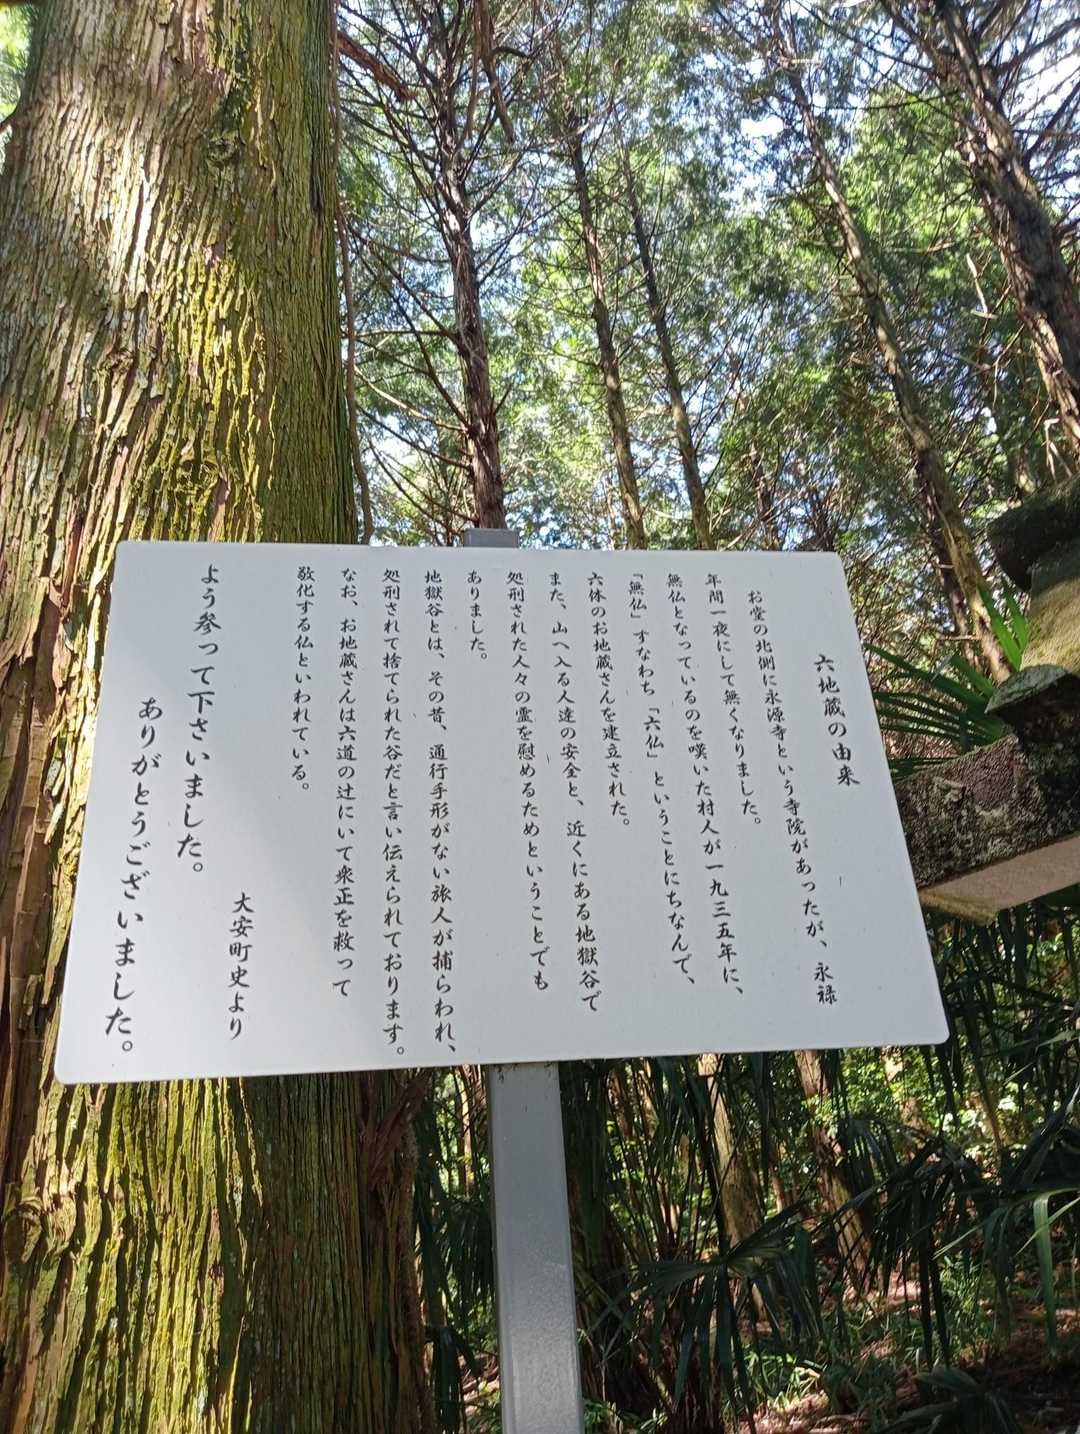 六地蔵の由来
お堂の北側に永源寺という寺院があったが、永禄
年間一夜にして無くなりました。
無仏となっているのを嘆いた村人が一九三五年に、
「無仏」すなわち「六仏」ということにちなんで、
六体のお地蔵さんを建立された。
また、山へ入る人達の安全と、近くにある地獄谷で
処刑された人々の霊を慰めるためということでも
ありました。
地獄谷とは、その昔、通行手形がない旅人が捕らわれ、
処刑されて捨てられた谷だと言い伝えられております。
なお、お地蔵さんは六道の辻にいて衆正を救って
敎化する仏といわれている。
大安町史より
よう参って下さいました。
ありがとうございました。